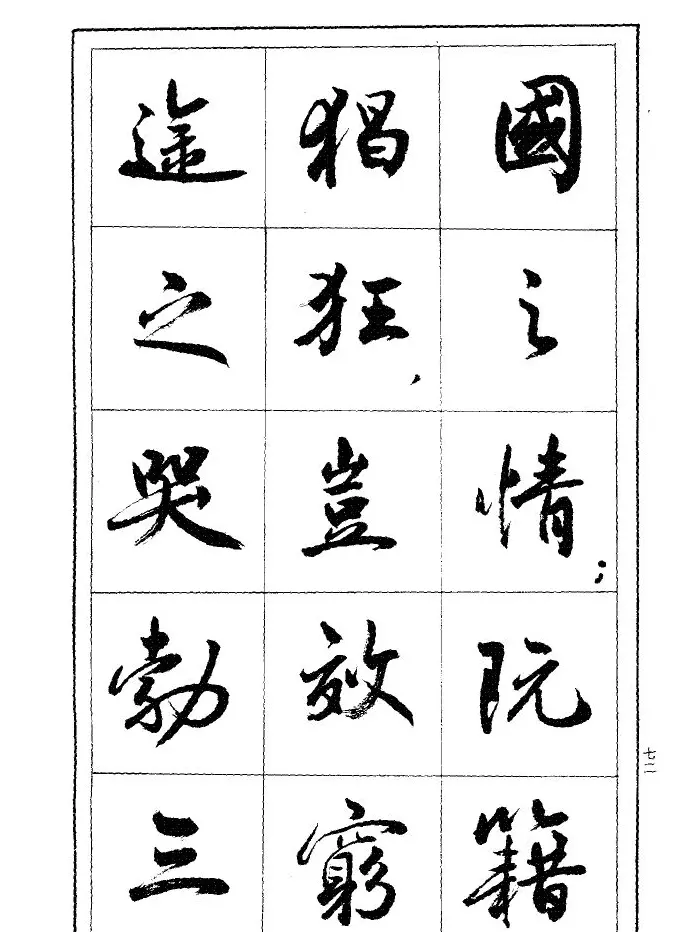 國之情；阮籍
猖狂，豈效窮
途之哭勃三
七二